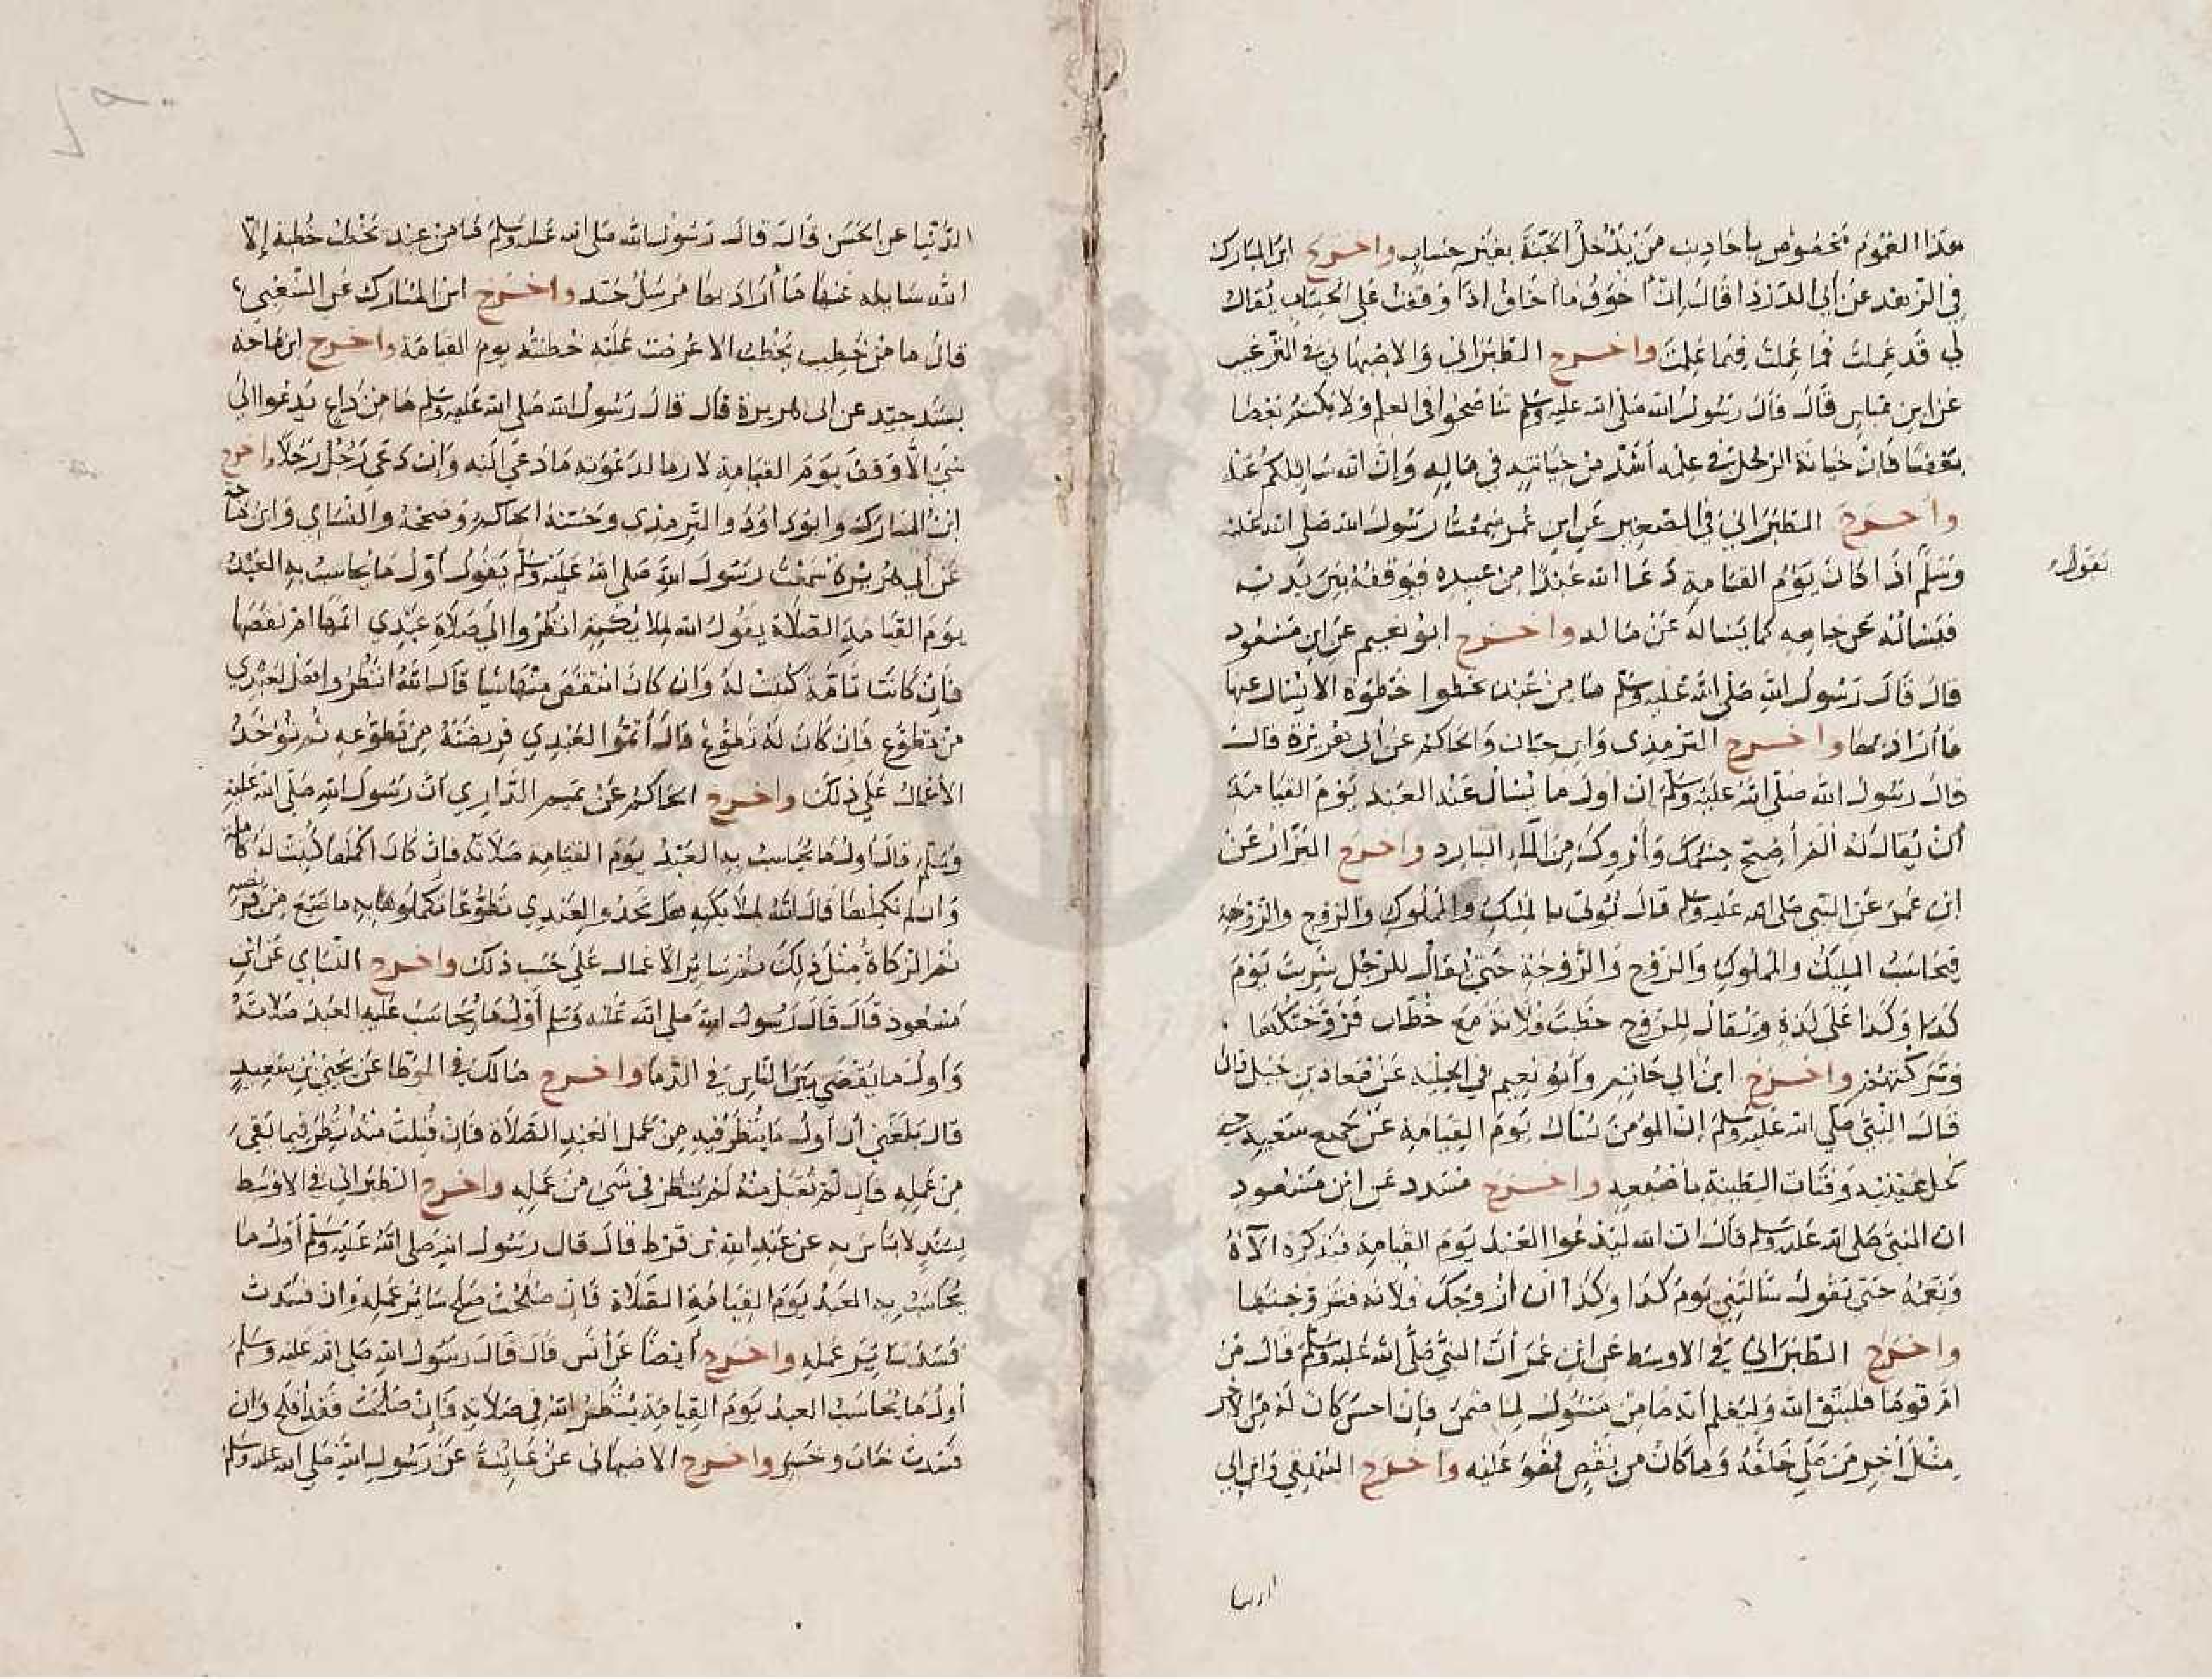 هذا العموم مخصوص بأحاديث من يدخل الجنة بغير حساب واخرج ابن المبارك
في الزهد عن أبي الدرداء قال إن أخوف ما أخاف إذا وقفت على الحساب يقال
لي قد علمت فما عملت فيما علمت واخرج الطبراني والاصبهاني في الترغيب
عن ابن عباس قال قال رسول الله صلى الله عليه وسلم تناصحوا في العلم ولا يكتم بعضكم
بعضا فإن خيانة الرجل في علمه أشد من خيانته في ماله وإن الله سائلكم عنه
واخرج الطبراني في الصغير عن ابن عمر سمعت رسول الله صلى الله عليه
وسلم اذا كان يوم القيامة دعا الله عبدا من عبيده فيوقفه بين يديه
يقول
فيسأله عن جاهه كما يسأله عن ماله واخرج ابو نعيم عن ابن مسعود
قال قال رسول الله صلى الله عليه وسلم ما من عبد يخطوا خطوة الا يسال عنها
ما أراد بها واخرج الترمذي وابن حبان والحاكم عن أبي هريرة قال
قال رسول الله صلى الله عليه وسلم إن أول ما يسأل عنه العبد يوم القيامة
أن يقال له ألم أصح جسمك وأروك من الماء البارد واخرج البزار عن
ابن عمر عن النبي صلى الله عليه وسلم قال يؤتى بالمليك والمملوك والزوج والزوجة
فيحاسب المليك والمملوك والزوج والزوجة حتى يقال للرجل شربت يوم
كذا وكذا على لذة ويقال للزوج خطبت فلانة مع خطاب فزوجتكها
وتركتهم واخرج ابن أبي حاتم وأبو نعيم في الحلية عن معاذ بن جبل قال
قال النبي صلى الله عليه وسلم إن المؤمن يسأل يوم القيامة عن جميع سعيه حتى
كحل عينيه وفتات الطينة باصبعه واخرج مسدد عن ابن مسعود
ان النبي صلى الله عليه وسلم قال ان الله ليدعوا العبد يوم القيامة فيذكره الآءه
ونعمه حتى يقول سالتني يوم كذا وكذا ان ازوجك فلانه فزوجتكها
واخرج الطبراني في الاوسط عن ابن عمر أن النبي صلى الله عليه وسلم قال من
ام قوما فليتق الله وليعلم انه ضامن مسؤل لما ضمن فإن احسن كان له من الاجر
مثل أجر من صلى خلفه وما كان من نقص فهو عليه واخرج البيهقي وابن أبي
الدنيا
الدنيا عن الحسن قال قال رسول الله صلى الله عليه وسلم ما من عبد يخطب خطبة إلا
الله سايله عنها ما أراد بها مرسل جيد واخرج ابن المبارك عن الشعبي
قال ما من خطيب يخطب الا عرضت عليه خطبته يوم القيامة واخرج ابن ماجة
بسند جيد عن ابى هريرة قال قال رسول الله صلى الله عليه وسلم ما من داع يدعوا الى
شيء الا وقف يوم القيامة لازما لدعوته ما دعى اليه وإن دعى رجل رجلا واخرج
ابن المبارك وابو داود والترمذي وحسنه الحاكم وصححه والنسائي وابن ماجة
عن أبي هريرة سمعت رسول الله صلى الله عليه وسلم يقول أول ما يحاسب به العبد
يوم القيامة الصلاة يقول الله لملائكته انظروا الى صلاة عبدي اتمها ام نقصها
فإن كانت تامة كتبت له وان كان انتقص منها شيا قال الله انظروا هل لعبدي
من تطوع فان كان له تطوع قال أتموا لعبدي فريضته من تطوعه ثم تؤخذ
الأعمال على ذلك واخرج الحاكم عن تميم الداري أن رسول الله صلى الله عليه
وسلم قال أول ما يحاسب به العبد يوم القيامة صلاته فإن كان أكملها كتبت له كاملة
وان لم يكملها قال الله لملائكته هل تجدوا لعبدي تطوعا تكملوها به ما ضيع من فريضته
ثم الزكاة مثل ذلك ثم سائر الأعمال على حسب ذلك واخرج النساي عن ابن
مسعود قال قال رسول الله صلى الله عليه وسلم أول ما يحاسب عليه العبد صلاته
وأول ما يقضى بين الناس في الدما واخرج مالك في الموطا عن يحيى بن سعيد
قال بلغني أن أول ما ينظر فيه من عمل العبد الصلاة فإن قبلت منه نظر فيما بقي
من عمله فإن لم تقبل منه لم ينظر في شيء من عمله واخرج الطبراني في الاوسط
بسند لا بأس به عن عبد الله بن قرط قال قال رسول الله صلى الله عليه وسلم أول ما
يحاسب به العبد يوم القيامة الصلاة فإن صلحت صلح سائر عمله وان فسدت
فسد سائر عمله واخرج أيضا عن أنس قال قال رسول الله صلى الله عليه وسلم
أول ما يحاسب العبد يوم القيامة ينظر الله في صلاته فإن صلحت فقد أفلح وان
فسدت خاب وخسر واخرج الاصبهانى عن عائشة عن رسول الله صلى الله عليه وسلم